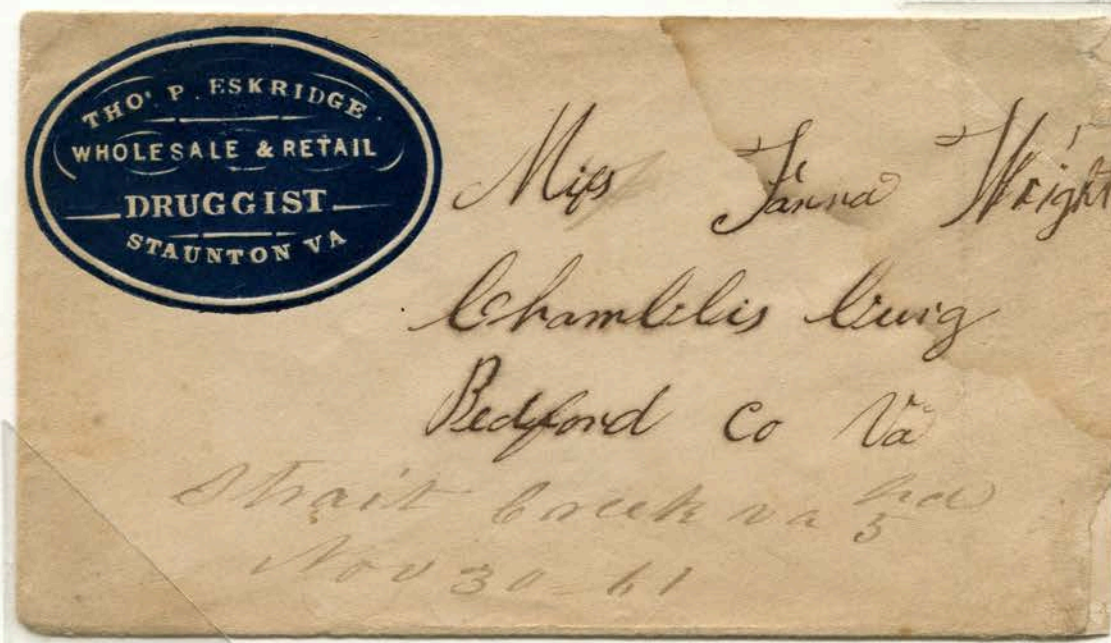 THO. P. ESKRIDGE.
WHOLESALE & RETAIL
DRUGGIST
STAUNTON VA
Miss Fanna Wright
Chamblis
Bedford Co Va
Strait Creek va
Nov 30 61